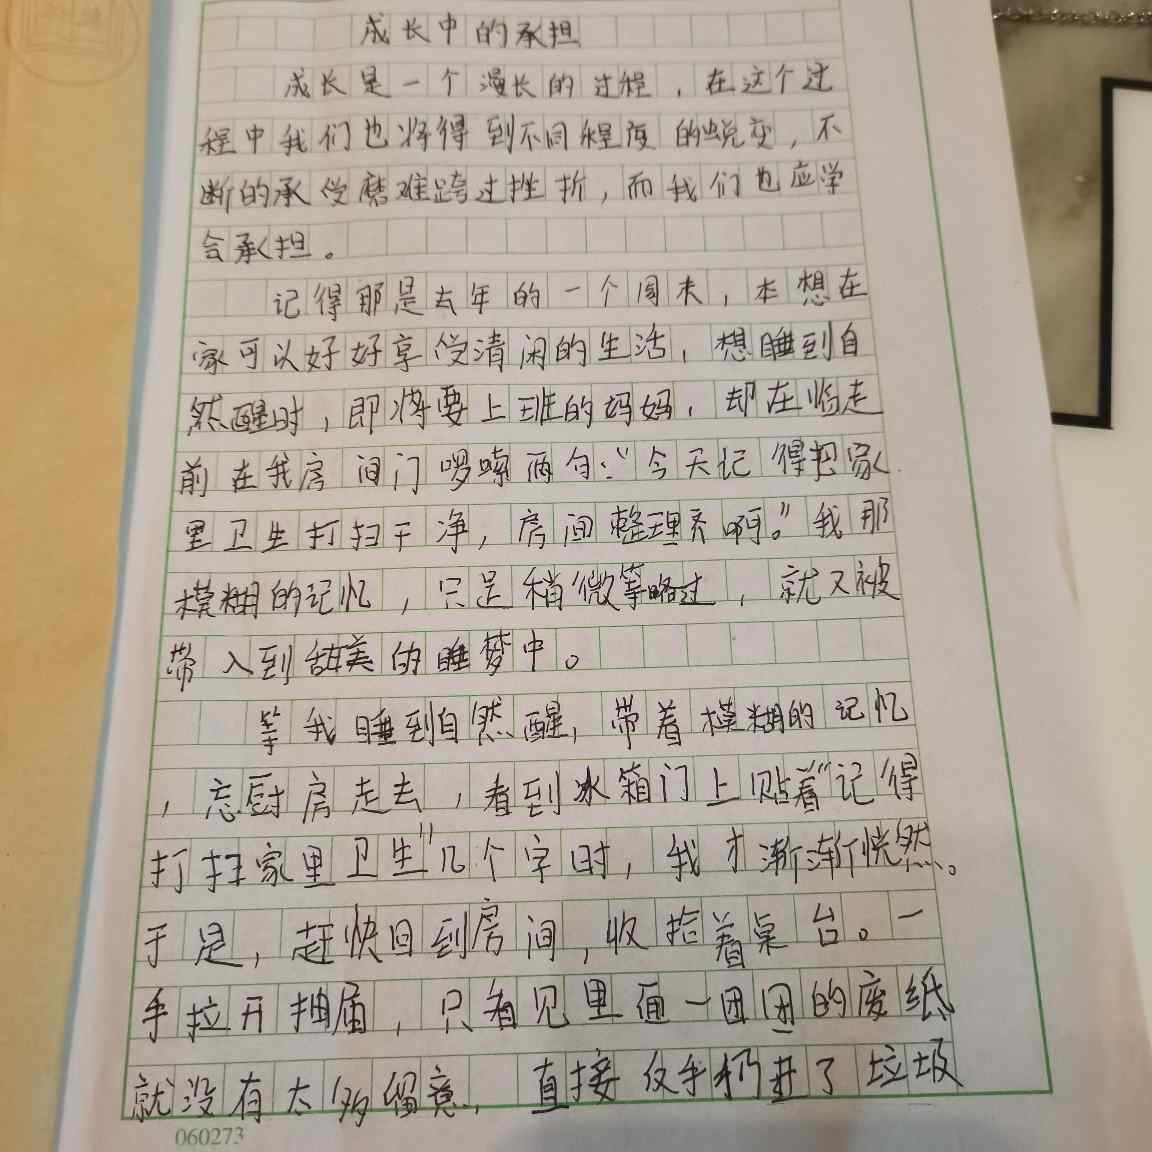 成长中的承担
成长是一个漫长的过程，在这个过
程中我们也将得到不同程度的蜕变，不
断的承受磨难跨过挫折，而我们也应学
会承担。
记得那是去年的一个周末，本想在
家可以好好享受清闲的生活，想睡到自
然醒时，即将要上班的妈妈，却在临走
前在我房间门啰嗦两句：“今天记得把家
里卫生打扫干净，房间整理齐啊。”我那
模糊的记忆，只是稍微等略过，就又被
带入到甜美的睡梦中。
等我睡到自然醒，带着模糊的记忆
，忘厨房走去，看到冰箱门上贴着“记得
打扫家里卫生”几个字时，我才渐渐恍然。
于是，赶快回到房间，收拾着桌台。一
手拉开抽屉，只看见里面一团团的废纸
就没有太多留意，直接反手扔进了垃圾
060273